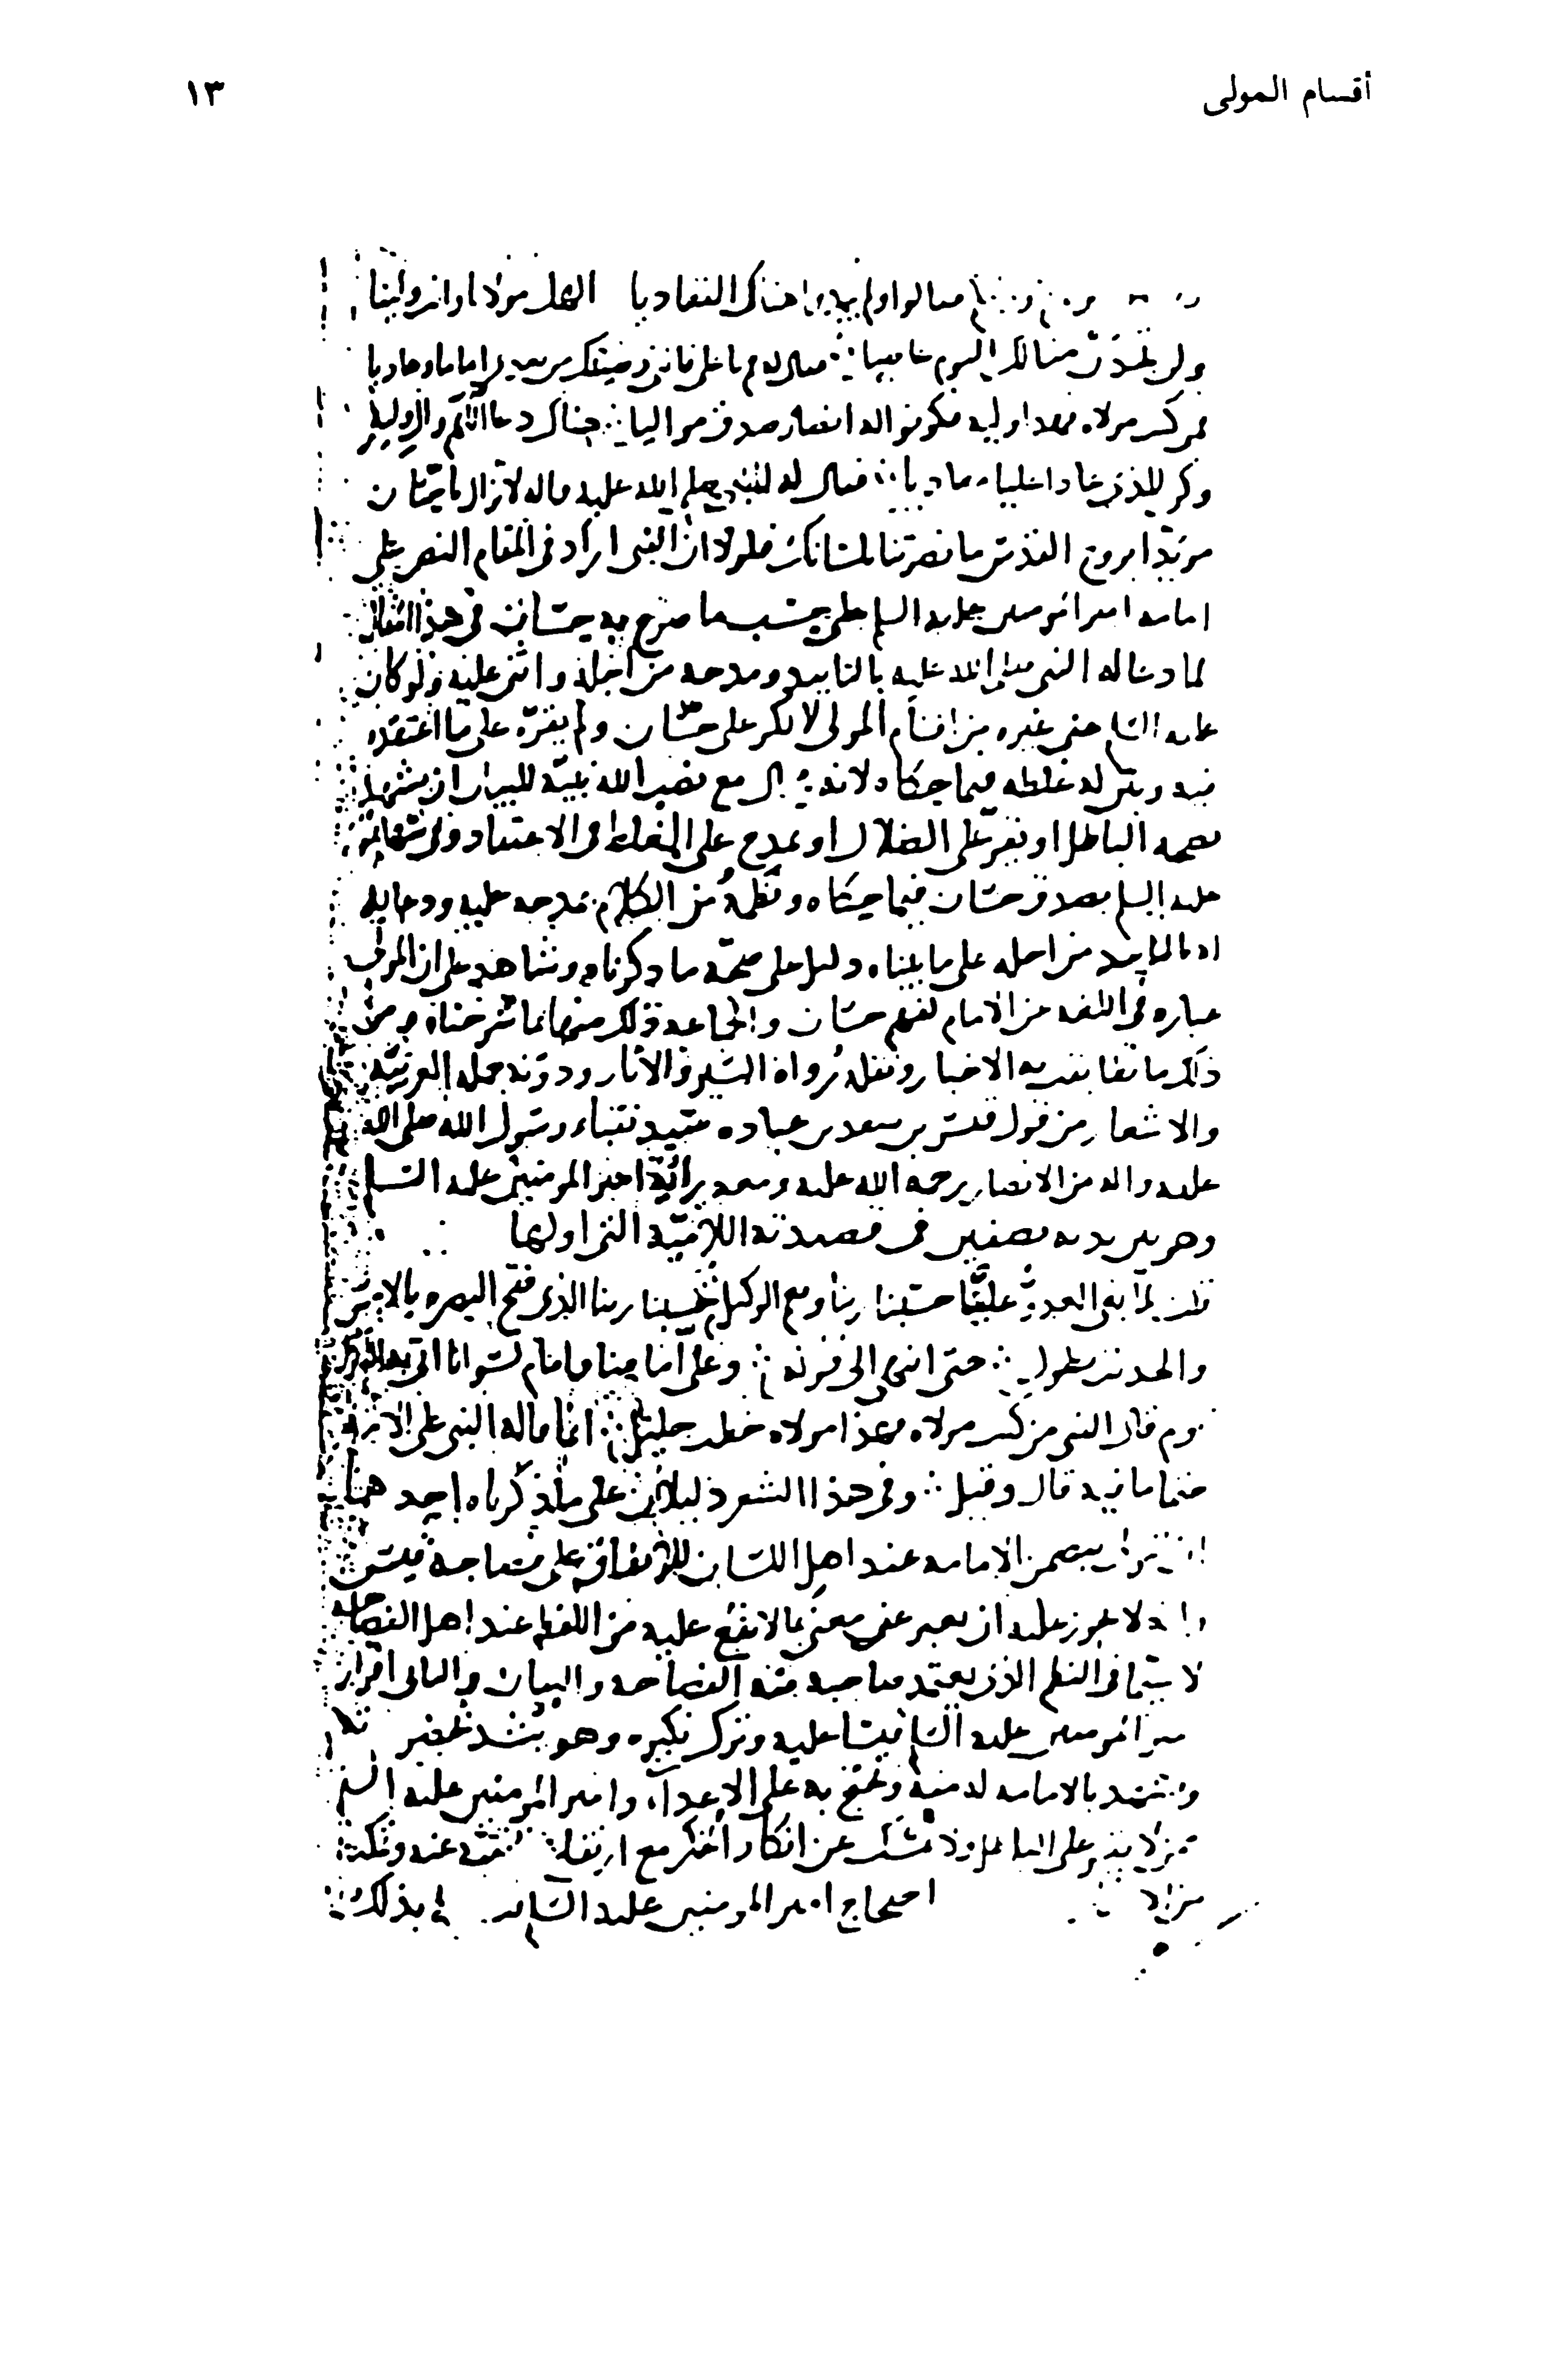 أقسام المولى ١٣
فقالوا ولم يبدوا هناك التعاديا الهك مولانا وانت ولينا
ولن تجدن منا لك اليوم عاصيا فقال له قم يا علي فانني رضيتك من بعدي اماما وهاديا
فمن كنت مولاه فهذا وليه فكونوا له انصار صدق مواليا هناك دعا اللهم وال وليه
وكن للذي عادا عليا معاديا فقال له النبي صلى الله عليه واله لا تزال يا حسان
مؤيدا بروح القدس ما نصرتنا بلسانك فلولا ان النبي اراد في المقام النص على
امامة امير المومنين عليه السلم على حسب ما صرح به حسان في هذا المقال
لما دعا له النبي صلى الله عليه بالتاييد ومدحه من اجله واثنى عليه ولو كان
عليه السلم عنى غيره من اقسام المولى لانكر على حسان ولم يقره على ما اعتقده
فيه وبين له غلطه فيما حكاه لانه مع نصب الله نبيه للبيان ان يشهد
بصحة الباطل او يقر على الضلال او يمدح على الغلط في الاعتقاد وفي شهادته
عليه السلم بصدق حسان فيما حكاه ونظمه من الكلام ومدحه عليه ودعايه
له بالتاييد من اجله على ما بيناه دليل على صحة ما ذكرناه وشاهد على ان المولى
عباره في اللغه عن الامام لفهم حسان والجماعه ذلك منها بما شرحناه ومن
ذلك ما نقله الاخبار ونقله رواة السير والاثار ودونه حملة العربية
والاشعار من قول قيس بن سعد بن عباده سيد نقباء رسول الله صلى الله
عليه واله من الانصار رحمة الله عليه ومعه راية امير المومنين عليه السلم
وهو بين يديه بصفين في قصيدته اللاميه التي اولها
قلت لما بغى العدو علينا حسبنا ربنا ونعم الوكيل حسبنا ربنا الذي فتح البصره بالامس
والحديث يطول حتى انتهى الى قوله وعلي امامنا وامام لسوانا اتى به التنزيل
يوم قال النبي من كنت مولاه فهذا مولاه خطب جليل انما قاله النبي على الامة
حتما ما فيه قال وقيل وفي هذا الشعر دليلان على ما ذكرناه احدهما
ان المولى يتضمن الامامه عند اهل اللسان للاتفاق على فصاحة قيس
وانه لا يجوز عليه ان يعبر عن معنى بما لا يقع عليه من اللفظ عند اهل الفصاحه
لا سيما في النظم الذي يعتمد صاحبه فيه الفصاحه والبيان والثاني اقرار
امير المومنين عليه السلم قيسا عليه وترك نكيره وهو ينشد بحضرته
ويشهد بالامامه له ويحتج به على الاعداء وامير المومنين عليه السلم
ممن لا يقر على الباطل ولا يمسك عن انكار المنكر مع ارتفاع
احتجاج امير المومنين عليه السلم بذلك